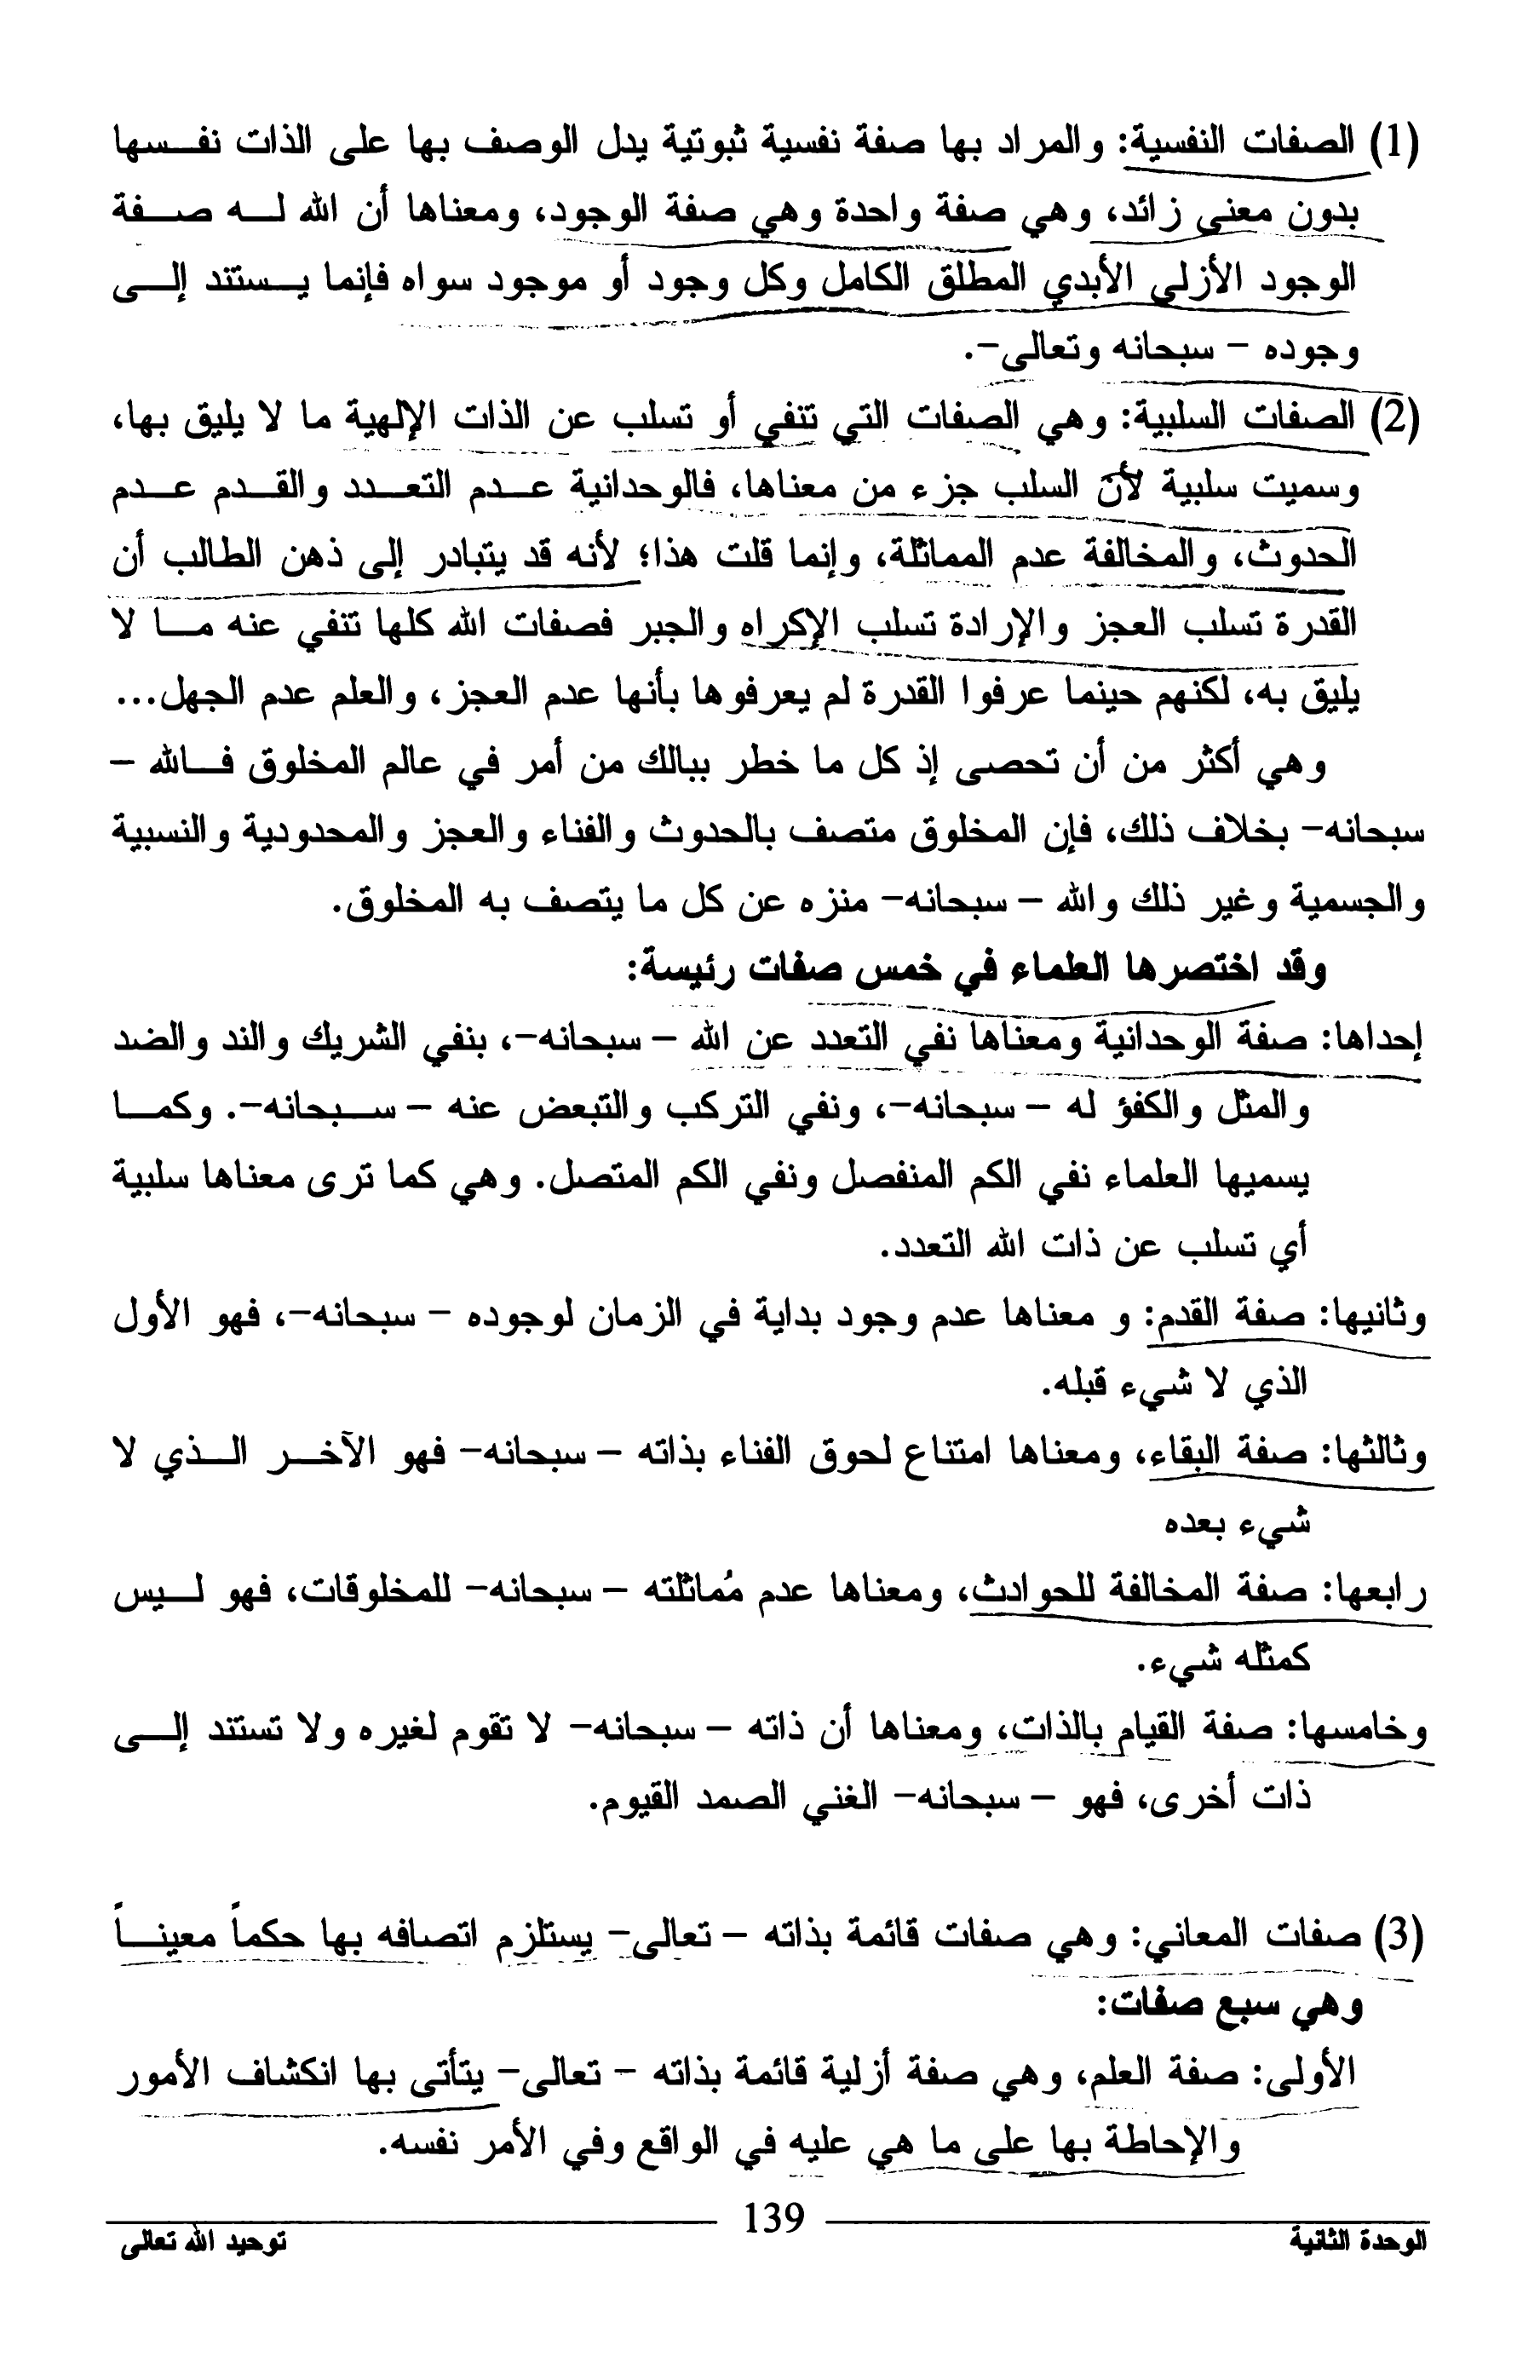 (1) الصفات النفسية: والمراد بها صفة نفسية ثبوتية يدل الوصف بها على الذات نفسها
بدون معنى زائد، وهي صفة واحدة وهي صفة الوجود، ومعناها أن الله له صفة
الوجود الأزلي الأبدي المطلق الكامل وكل وجود أو موجود سواه فإنما يستند إلى
وجوده - سبحانه وتعالى-.
(2) الصفات السلبية: وهي الصفات التي تنفي أو تسلب عن الذات الإلهية ما لا يليق بها،
وسميت سلبية لأن السلب جزء من معناها، فالوحدانية عدم التعدد والقدم عدم
الحدوث، والمخالفة عدم المماثلة، وإنما قلت هذا؛ لأنه قد يتبادر إلى ذهن الطالب أن
القدرة تسلب العجز والإرادة تسلب الإكراه والجبر فصفات الله كلها تنفي عنه ما لا
يليق به، لكنهم حينما عرفوا القدرة لم يعرفوها بأنها عدم العجز، والعلم عدم الجهل...
وهي أكثر من أن تحصى إذ كل ما خطر ببالك من أمر في عالم المخلوق فالله -
سبحانه- بخلاف ذلك، فإن المخلوق متصف بالحدوث والفناء والعجز والمحدودية والنسبية
والجسمية وغير ذلك والله - سبحانه- منزه عن كل ما يتصف به المخلوق.
وقد اختصرها العلماء في خمس صفات رئيسة:
إحداها: صفة الوحدانية ومعناها نفي التعدد عن الله - سبحانه-، بنفي الشريك والند والضد
والمثل والكفؤ له - سبحانه-، ونفي التركب والتبعض عنه - سبحانه-. وكما
يسميها العلماء نفي الكم المنفصل ونفي الكم المتصل. وهي كما ترى معناها سلبية
أي تسلب عن ذات الله التعدد.
وثانيها: صفة القدم: و معناها عدم وجود بداية في الزمان لوجوده - سبحانه-، فهو الأول
الذي لا شيء قبله.
وثالثها: صفة البقاء، ومعناها امتناع لحوق الفناء بذاته - سبحانه- فهو الآخر الذي لا
شيء بعده
رابعها: صفة المخالفة للحوادث، ومعناها عدم مُماثلته - سبحانه- للمخلوقات، فهو ليس
كمثله شيء.
وخامسها: صفة القيام بالذات، ومعناها أن ذاته - سبحانه- لا تقوم لغيره ولا تستند إلى
ذات أخرى، فهو - سبحانه- الغني الصمد القيوم.
(3) صفات المعاني: وهي صفات قائمة بذاته - تعالى- يستلزم اتصافه بها حكماً معيناً
وهي سبع صفات:
الأولى: صفة العلم، وهي صفة أزلية قائمة بذاته - تعالى- يتأتى بها انكشاف الأمور
والإحاطة بها على ما هي عليه في الواقع وفي الأمر نفسه.
139
الوحدة الثانية توحيد الله تعالى